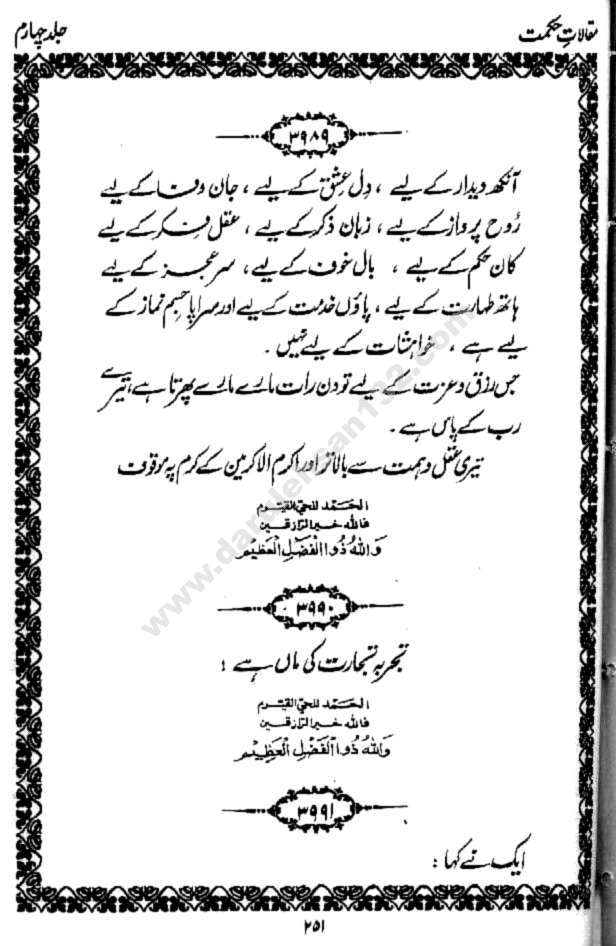 مقالاتِ حکمت
جلد چہارم
۳۹۸۹
آنکھ دیدار کے لیے ، دِل عشق کے لیے ، جان وفا کے لیے
رُوح پرواز کے لیے ، زبان ذکر کے لیے ، عقل فکر کے لیے
کان حکم کے لیے ، بال خوف کے لیے ، سر عجز کے لیے
ہاتھ طہارت کے لیے ، پاؤں خدمت کے لیے اور سراپا جسم نماز کے
لیے ہے ، خواہشات کے لیے نہیں ۔
جس رزق و عزت کے لیے تو دن رات مارے مارے پھرتا ہے، تیرے
رب کے پاس ہے ۔
تیری عقل و ہمت سے بالاتر اور اکرم الاکرمین کے کرم پہ موقوف
الحمد للحی القیوم
فاللہ خیر الرازقین
وَاللّٰهُ ذُو الْفَضْلِ الْعَظِيْمِ
۳۹۹۰
تجربہ تجارت کی ماں ہے !
الحمد للحی القیوم
فاللہ خیر الرازقین
وَاللّٰهُ ذُو الْفَضْلِ الْعَظِيْمِ
۳۹۹۱
ایک نے کہا :
۲۵۱
www.darulehsan132.com